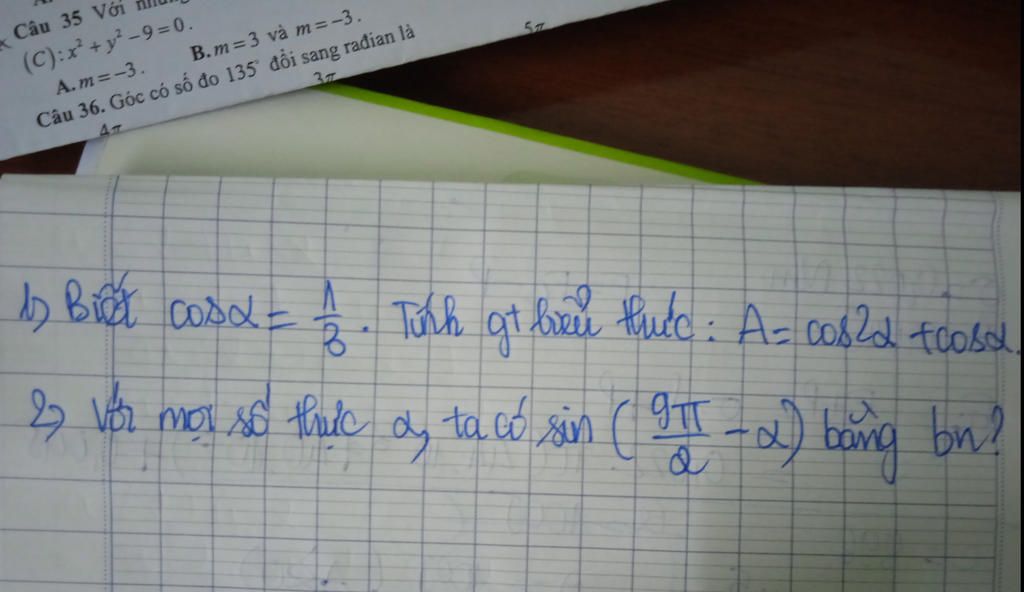 Câu 35 Với
(C): x² + y² - 9 = 0.
A. m = -3. B. m = 3 và m = -3.
Câu 36. Góc có số đo 135° đổi sang rađian là
4π 3π 5π
1) Biết cosα = 1/3. Tính gt biểu thức: A = cos2α + cosα.
2) Với mọi số thực α, ta có sin (9π/2 - α) bằng bn?